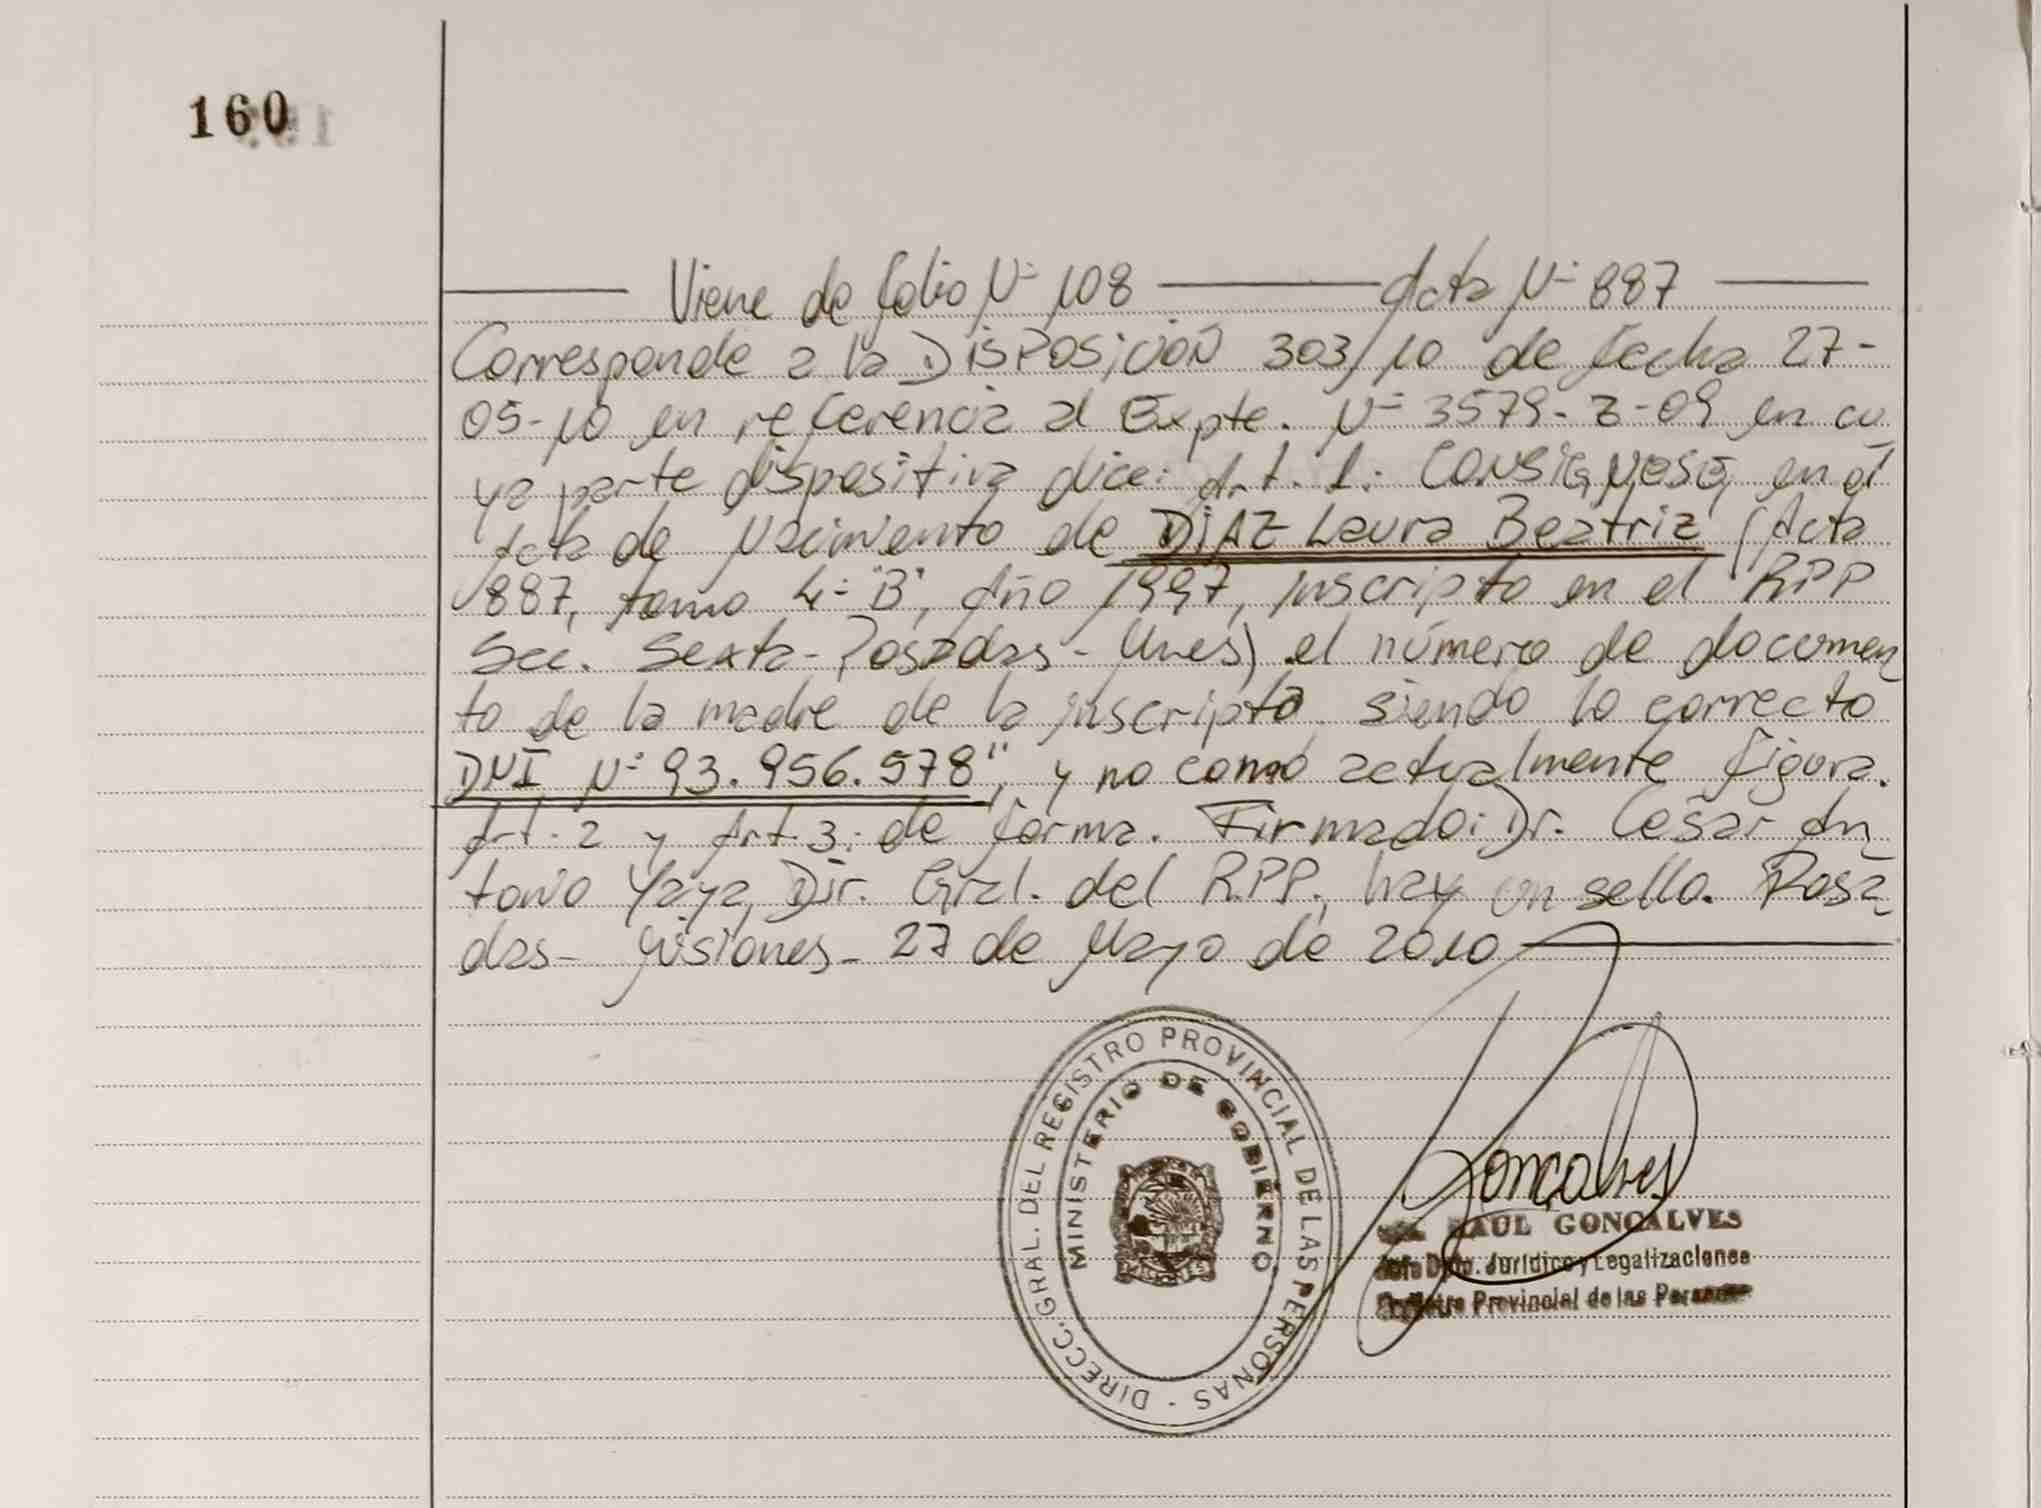 160
Viene de folio Nº 108 — Acta Nº 887
Corresponde a la DISPOSICIÓN 303/10 de fecha 27-
05-10 en referencia al Expte. Nº 3579-Z-09 en cu
ya parte dispositiva dice: Art. 1: CONSIGNESE, en el
Acta de Nacimiento de DIAZ Laura Beatriz (Acta
887, tomo 4º "B", Año 1997, inscripta en el RPP
Sec. Sexta-Posadas-Mnes) el número de documen
to de la madre de la inscripta siendo lo correcto
DNI Nº 93.956.578", y no como actualmente figura.
Art. 2 y Art 3: de forma. Firmado: Dr. Cesar An
tonio Yaya, Dir. Gral. del R.P.P., hay un sello. Posa
das- Misiones- 27 de Mayo de 2010
DIRECC. GRAL. DEL REGISTRO PROVINCIAL DE LAS PERSONAS -
MINISTERIO DE GOBIERNO
Gonçalves
RAUL GONCALVES
Jefe Dpto. Jurídico y Legalizaciones
Registro Provincial de las Personas